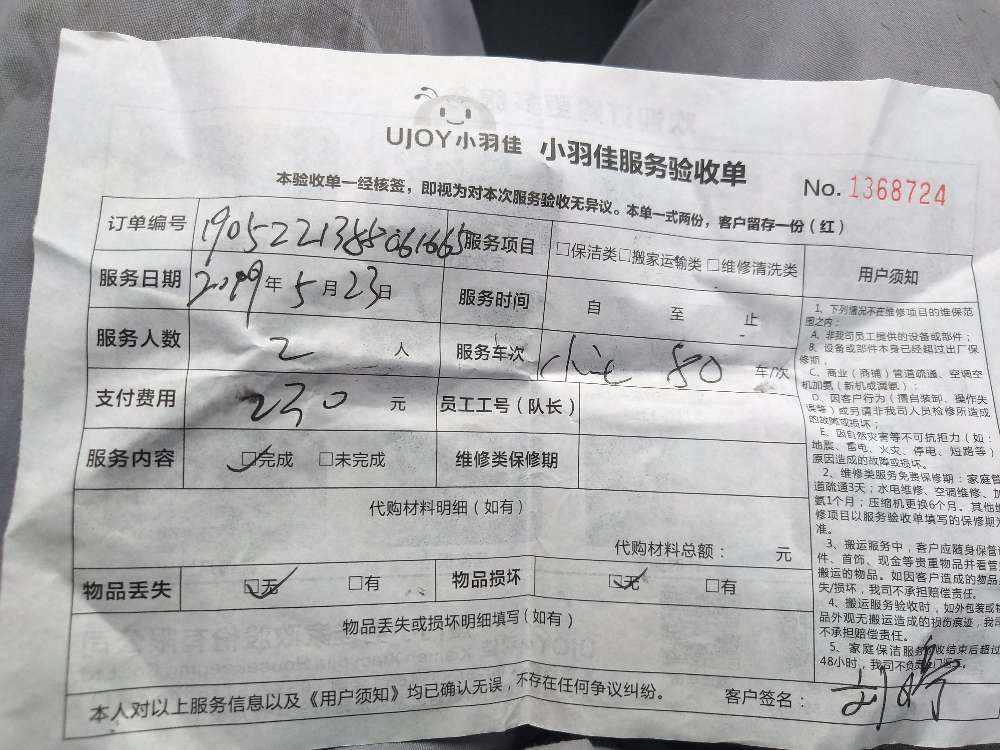 UJOY小羽佳 小羽佳服务验收单
No. 1368724
本验收单一经核签，即视为对本次服务验收无异议。本单一式两份，客户留存一份（红）
订单编号 服务项目 □保洁类□搬家运输类□维修清洗类
服务日期 2019年5月23日 服务时间 自 至 止
服务人数 2 人 服务车次 80 车/次
支付费用 230 元 员工工号（队长）
服务内容 ☑完成 □未完成 维修类保修期
代购材料明细（如有）
代购材料总额： 元
物品丢失 ☑无 □有 物品损坏 ☑无 □有
物品丢失或损坏明细填写（如有）
本人对以上服务信息以及《用户须知》均已确认无误，不存在任何争议纠纷。 客户签名：
用户须知
1、下列情况不在维修项目的维保范
围之内：
A、非我司员工提供的设备或部件；
B、设备或部件本身已经超过出厂保
修期；
C、商业（商铺）管道疏通、空调空
机加氨（新机或漏氨）；
D、因客户行为（擅自装卸、操作失
误等）或另请非我司人员检修所造成
的故障或损坏；
E、因自然灾害等不可抗拒力（如：
地震、雷电、火灾、停电、短路等）
原因造成的故障或损坏。
2、维修类服务免费保修期：家庭管
道疏通3天；水电维修、空调维修、加
氨1个月；压缩机更换6个月。其他维
修项目以服务验收单填写的保修期为
准。
3、搬运服务中，客户应随身保管
件、首饰、现金等贵重物品并看管
搬运的物品。如因客户造成的物品
失/损坏，我司不承担赔偿责任。
4、搬运服务验收时，如外包装或物
品外观无搬运造成的损伤痕迹，我司
不承担赔偿责任。
5、家庭保洁服务验收结束后超过
48小时，我司不负责